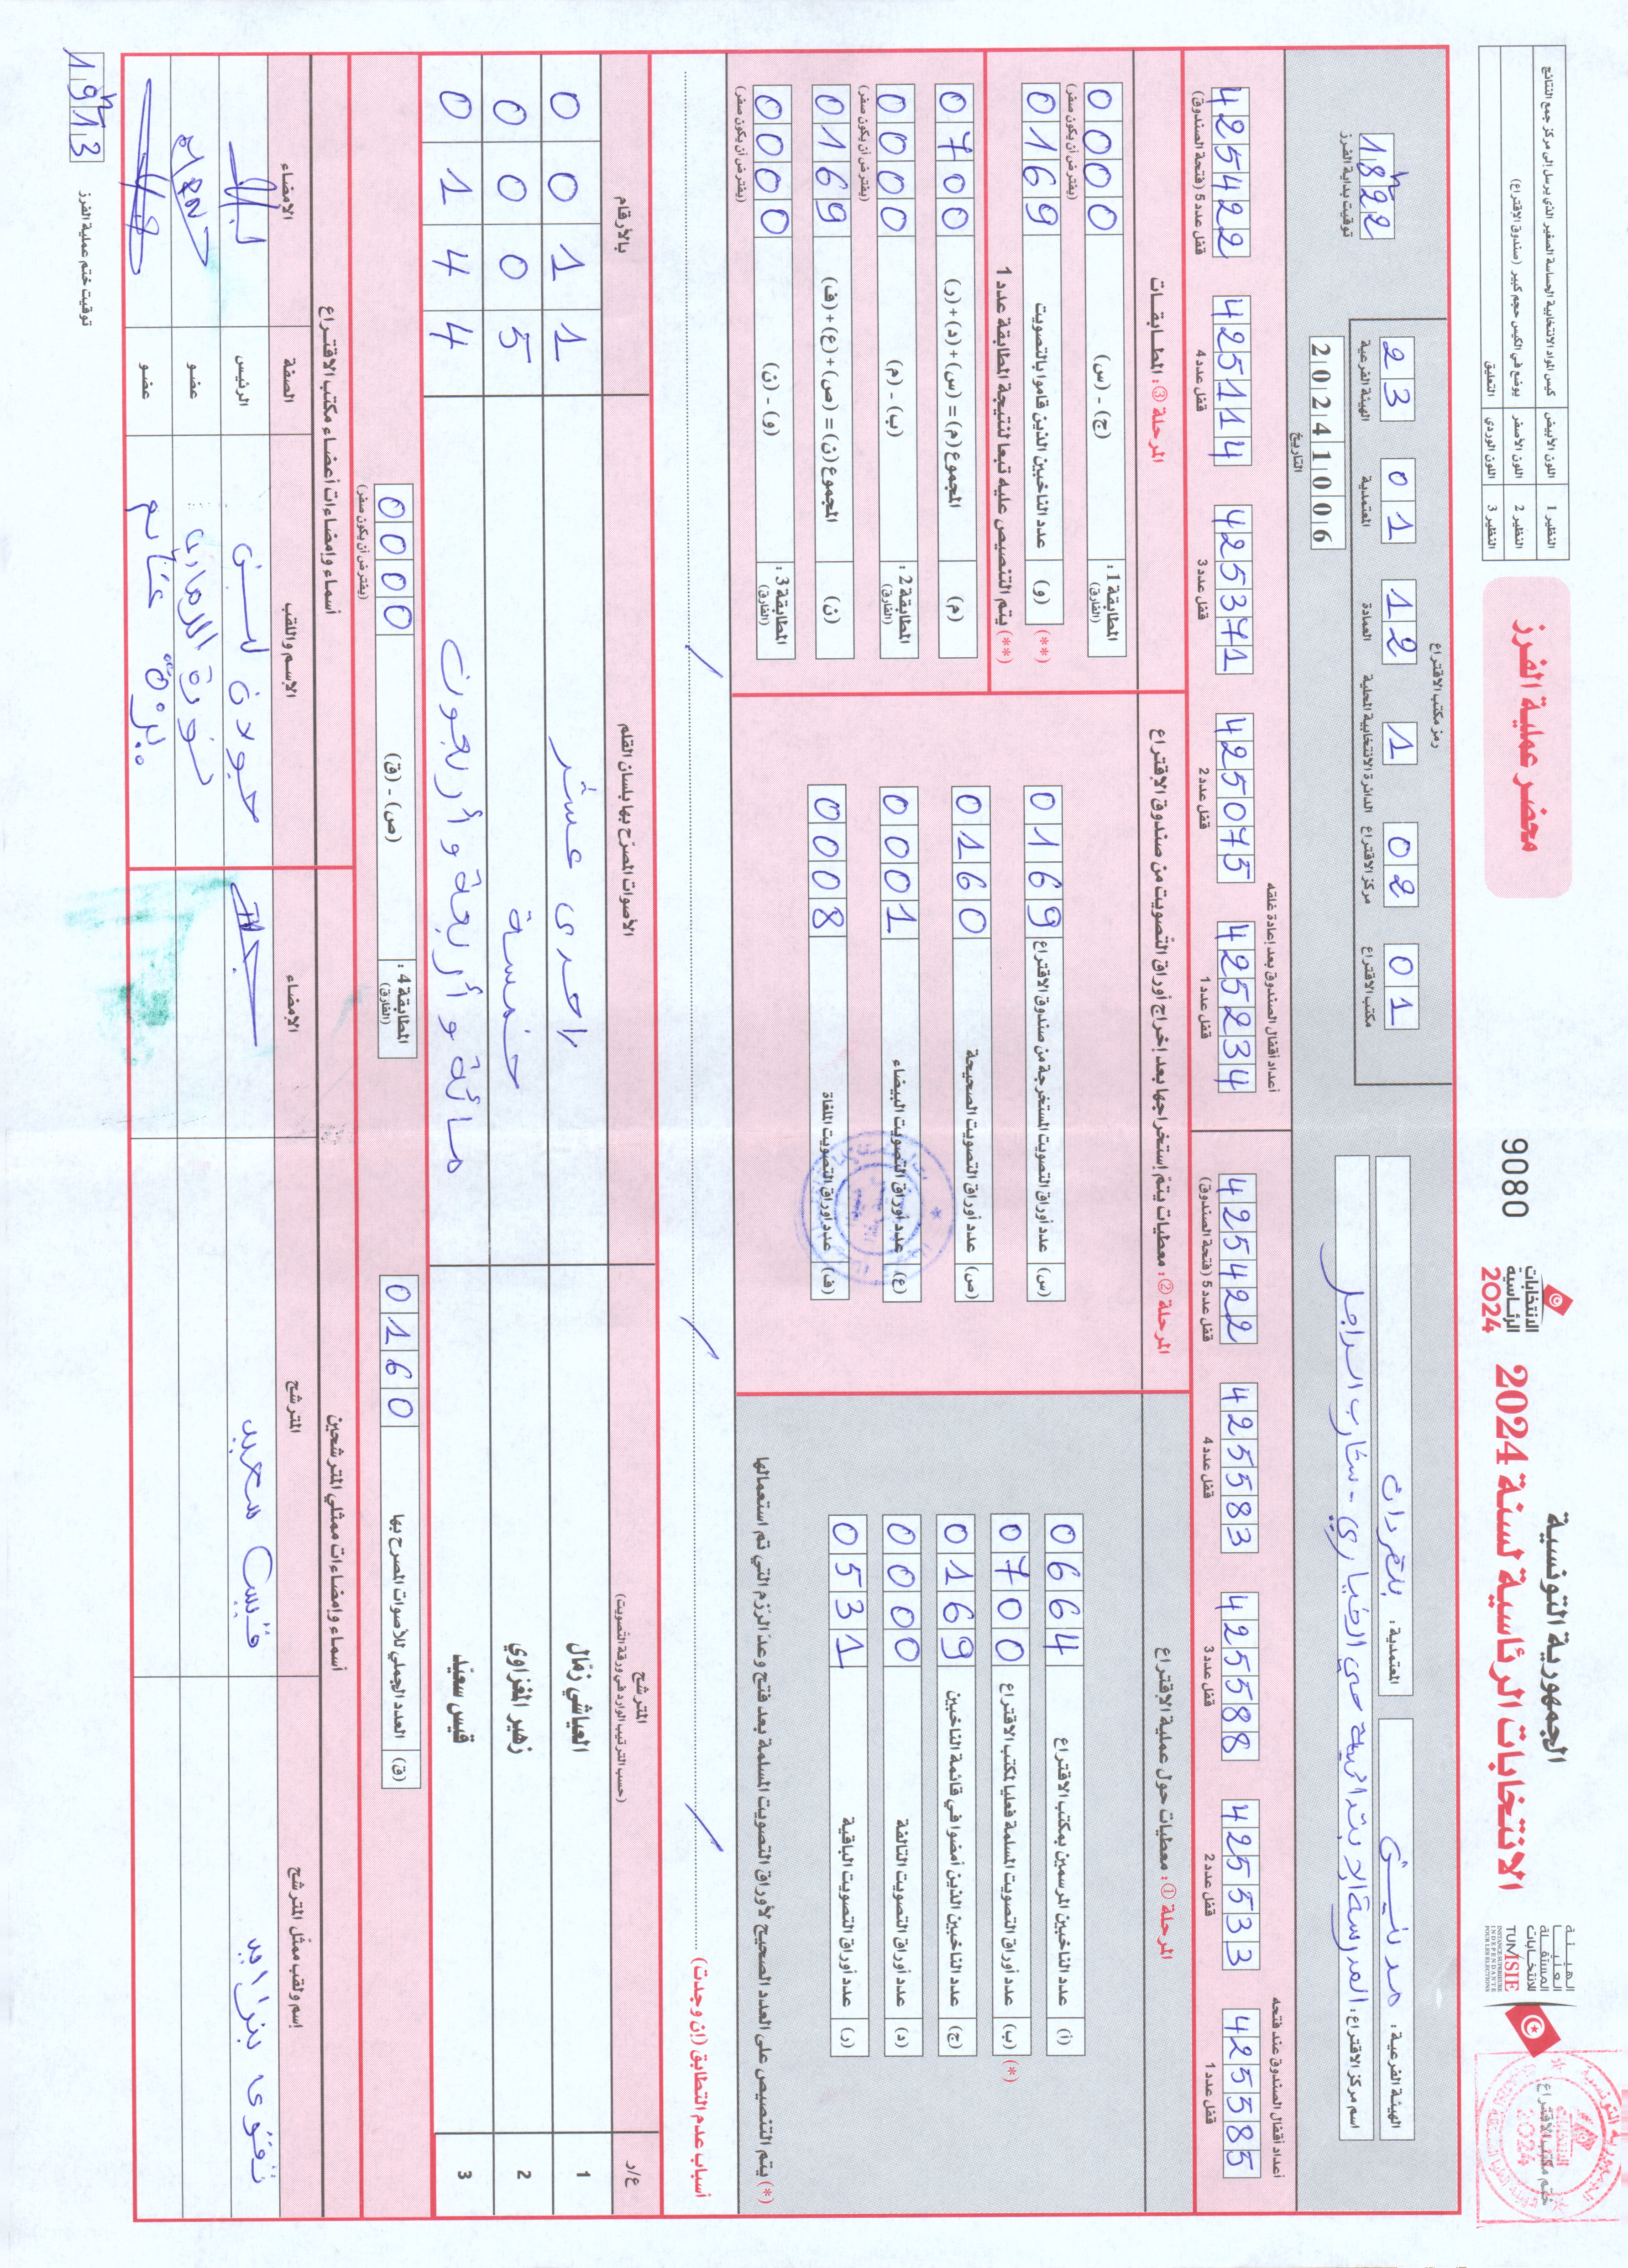 الجمهورية التونسية
الانتخابات الرئاسية لسنة 2024
الانتخابات الرئاسية 2024
9080
محضر عملية الفرز
الهيئة العليا المستقلة للانتخابات
TUNISIE
INSTANCE SUPERIEURE INDEPENDANTE POUR LES ELECTIONS
ختم مكتب الاقتراع
النظير 1 اللون الأبيض كيس المواد الانتخابية الحساسة الصغير الذي يرسل إلى مركز جمع النتائج
النظير 2 اللون الأصفر يوضع في الكيس حجم كبير (صندوق الاقتراع)
النظير 3 اللون الوردي التعليق
الهيئة الفرعية: مدنين
المعتمدية: بنقردان
اسم مركز الاقتراع: المدرسة الابتدائية حي الخياري - شارب الراجل
رمز مكتب الاقتراع
01 مكتب الاقتراع
02 مركز الاقتراع
1 الدائرة الانتخابية المحلية
12 العمادة
01 المعتمدية
23 الهيئة الفرعية
التاريخ 20241006
18h22 توقيت بداية الفرز
أعداد أقفال الصندوق عند فتحه
4255585 قفل عدد 1
4255533 قفل عدد 2
4255588 قفل عدد 3
4255583 قفل عدد 4
4255422 قفل عدد 5 (فتحة الصندوق)
أعداد أقفال الصندوق بعد إعادة غلقه
4255234 قفل عدد 1
4255075 قفل عدد 2
4255371 قفل عدد 3
4255114 قفل عدد 4
4255422 قفل عدد 5 (فتحة الصندوق)
المرحلة ①: معطيات حول عملية الاقتراع
(أ) عدد الناخبين المرسمين بمكتب الاقتراع 0664
(*) (ب) عدد أوراق التصويت المسلمة فعليا لمكتب الاقتراع 0700
(ج) عدد الناخبين الذين أمضوا في قائمة الناخبين 0169
(د) عدد أوراق التصويت التالفة 0000
(ر) عدد أوراق التصويت الباقية 0531
(*) يتم التنصيص على العدد الصحيح لأوراق التصويت المسلمة بعد فتح وعد الرزم التي تم استعمالها
المرحلة ②: معطيات يتم إستخراجها بعد إخراج أوراق التصويت من صندوق الاقتراع
(س) عدد أوراق التصويت المستخرجة من صندوق الاقتراع 0169
(ص) عدد أوراق التصويت الصحيحة 0160
(ع) عدد أوراق التصويت البيضاء 0001
(ف) عدد أوراق التصويت الملغاة 0008
المرحلة ③: المطابقات
المطابقة 1: (الفارق) (ج) - (س) 0000
(يفترض أن يكون صفر)
(**) (و) عدد الناخبين الذين قاموا بالتصويت 0169
(**) يتم التنصيص عليه تبعا لنتيجة المطابقة عدد 1
(م) المجموع (م) = (س) + (د) + (ر) 0700
المطابقة 2: (الفارق) (ب) - (م) 0000
(يفترض أن يكون صفر)
(ن) المجموع (ن) = (ص) + (ع) + (ف) 0169
المطابقة 3: (الفارق) (و) - (ن) 0000
(يفترض أن يكون صفر)
أسباب عدم التطابق (إن وجدت)
ع/ر المترشح (حسب الترتيب الوارد في ورقة التصويت) الأصوات المصرح بها بلسان القلم بالأرقام
1 العياشي زمال إحدى عشر 0011
2 زهير المغزاوي خمسة 0005
3 قيس سعيد مائة وأربعة وأربعون 0144
(ق) العدد الجملي للأصوات المصرح بها 0160
المطابقة 4: (الفارق) (ص) - (ق) 0000
(يفترض أن يكون صفر)
أسماء وإمضاءات ممثلي المترشحين
إسم ولقب ممثل المترشح المترشح الإمضاء
تقوى بنزايد قيس سعيد
أسماء وإمضاءات أعضاء مكتب الاقتراع
الإسم واللقب الصفة الامضاء
الرئيس
نورة عضو
عضو
19h13 توقيت ختم عملية الفرز